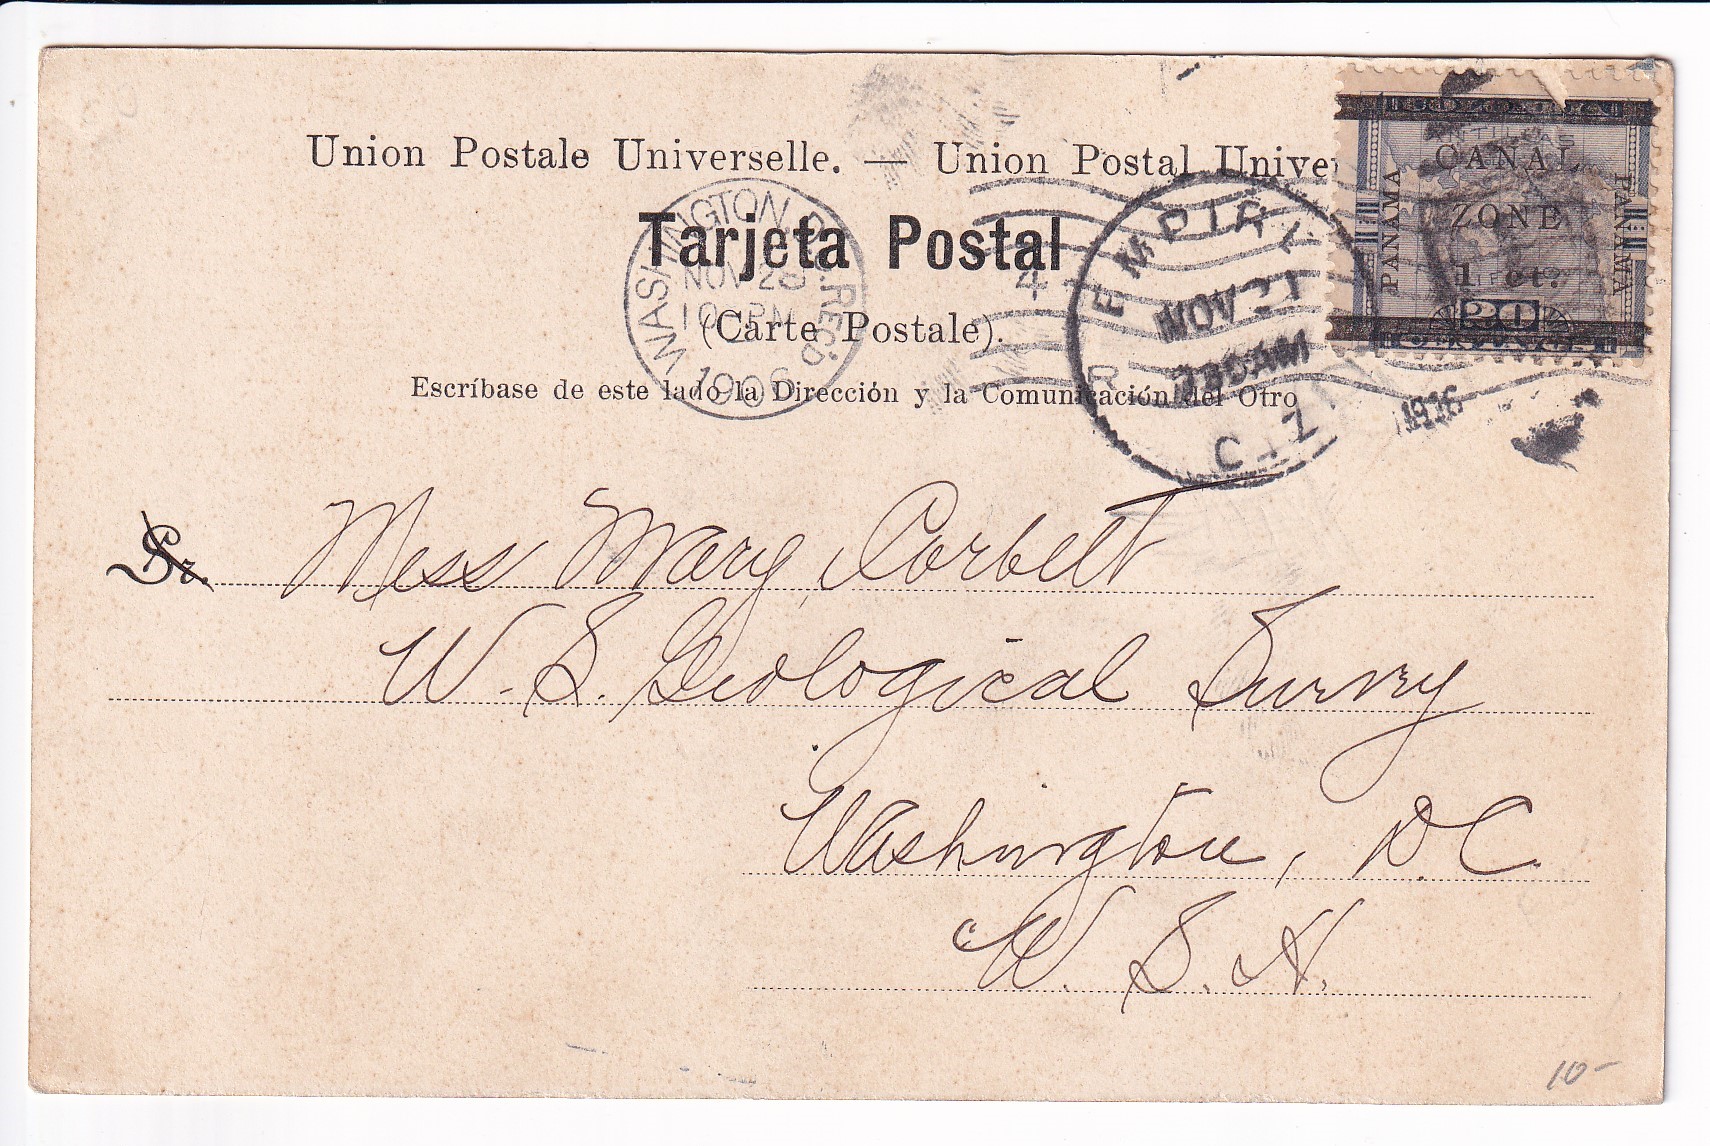 Union Postale Universelle. — Union Postal Univer
Tarjeta Postal
(Carte Postale).
Escríbase de este lado la Dirección y la Comunicación del Otro
WASHINGTON, D.C. REC'D
NOV 28
10 PM
1906
4
R
EMPIRE
NOV 21
C.Z.
1906
ANTILLAS
CANAL
ZONE
1 ct.
PANAMA
PANAMA
Sr.
Miss Mary Corbett
U. S. Geological Survey
Washington, D.C.
U. S. A.
10-